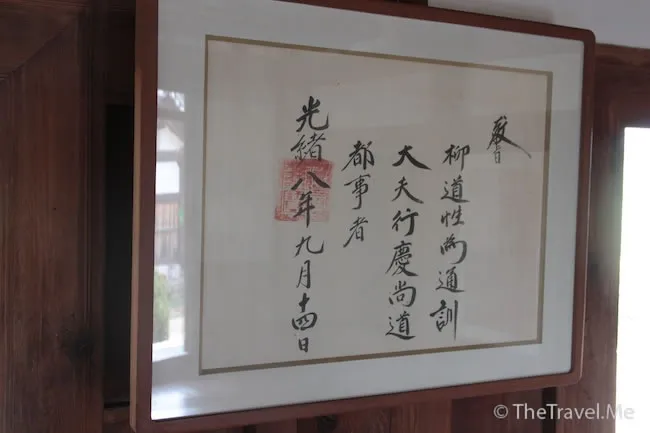 敎旨
柳道性爲通訓
大夫行慶尚道
都事者
光緖八年九月十四日
© TheTravel.Me